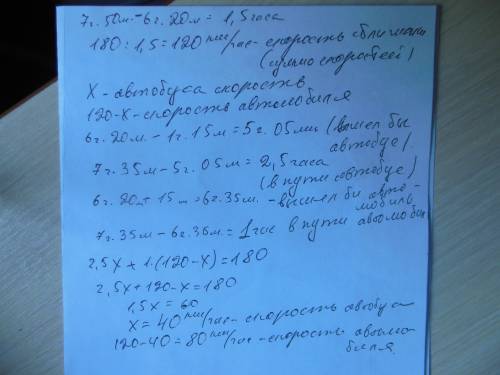 7ч. 50м - 6ч. 20м = 1,5 часа
180 : 1,5 = 120 км/час - скорость сближения
(сумма скоростей)
X - автобуса скорость
120-X - скорость автомобиля
6ч. 20м. - 1ч. 15м = 5ч. 05мин (вышел бы
автобус).
7ч. 35м - 5ч. 05м = 2,5 часа
(в пути автобус)
6ч. 20м + 15м = 6ч. 35м. - вышел бы авто-
мобиль
7ч. 35м - 6ч. 35м = 1 час в пути автомобиль
2,5X + 1·(120-X) = 180
2,5X + 120 - X = 180
1,5X = 60
X = 40 км/час - скорость автобуса
120-40 = 80 км/час - скорость автомо
биля.